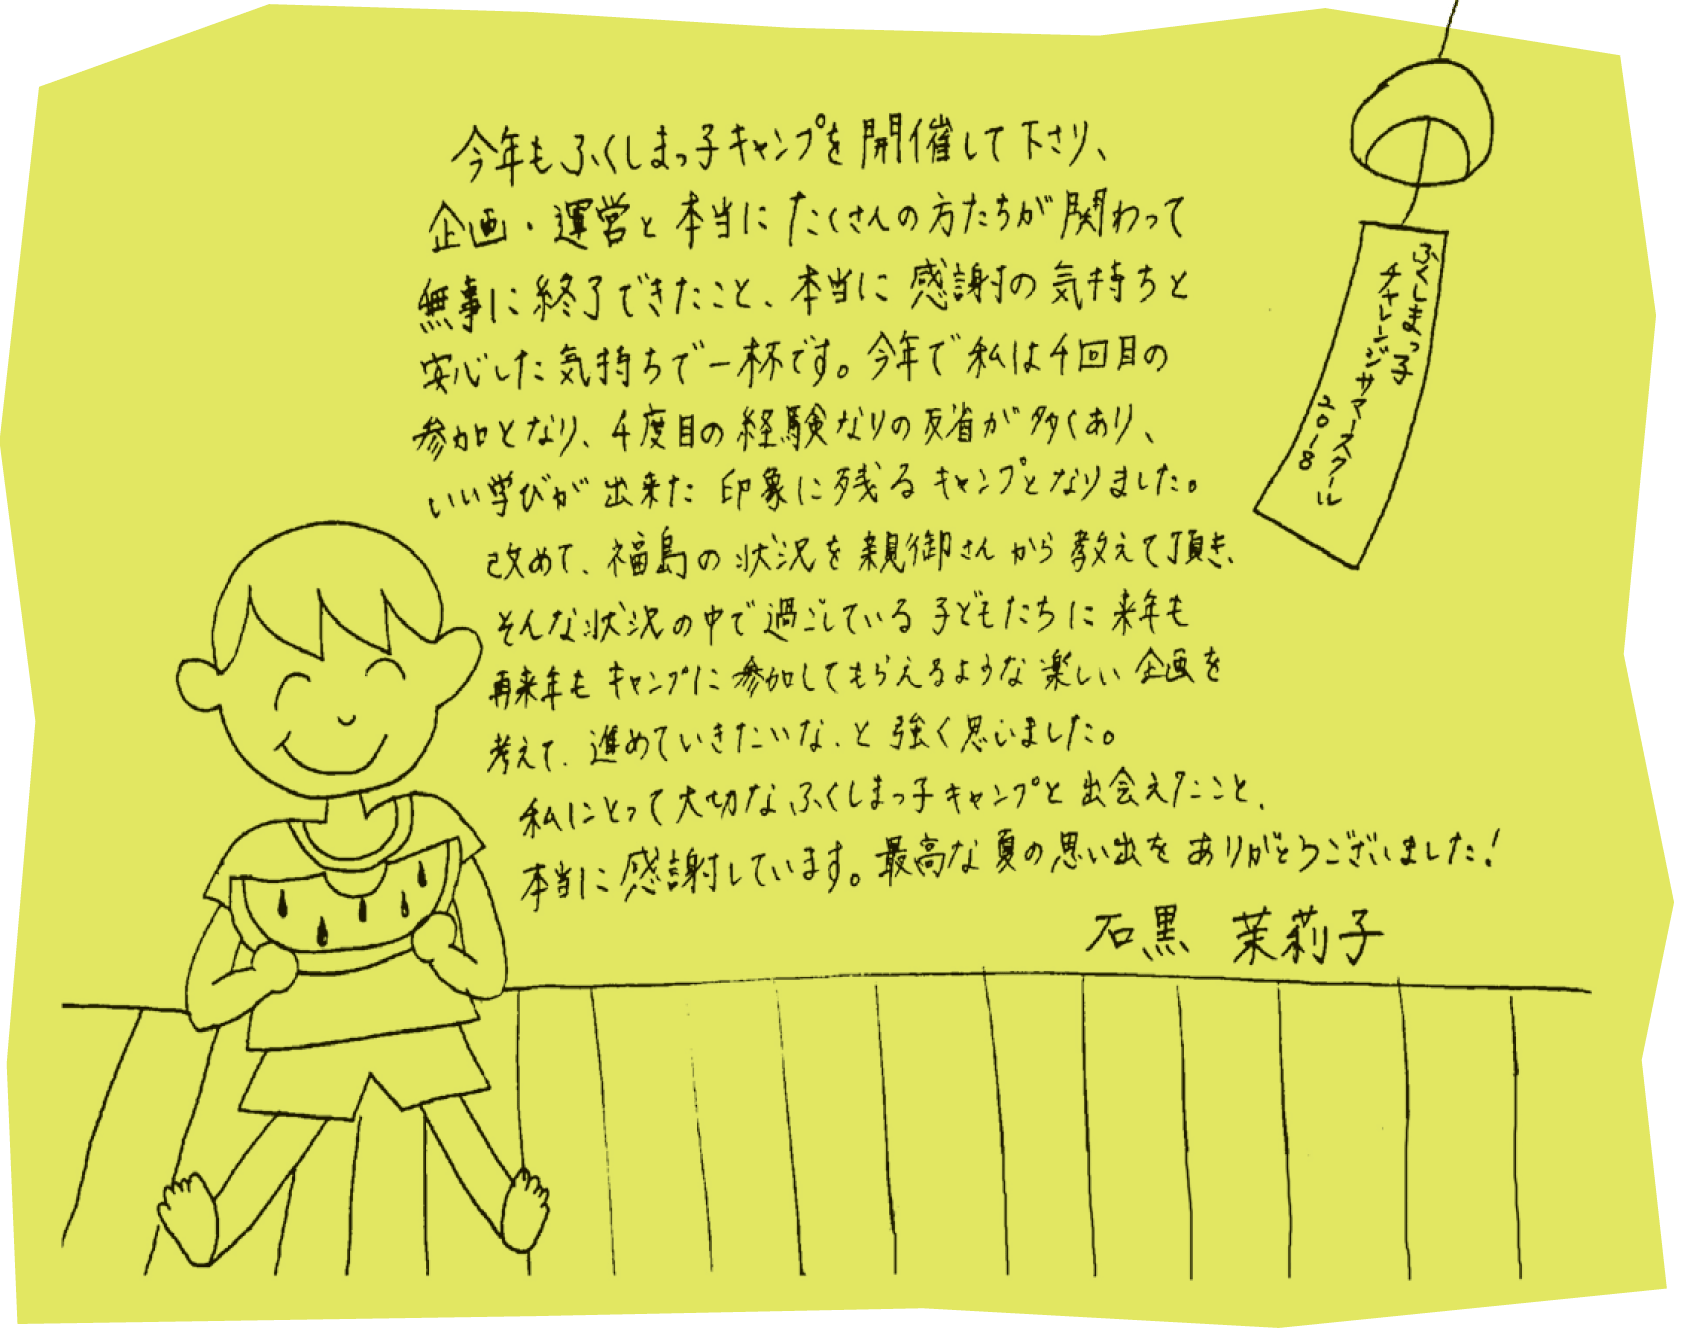 今年もふくしまっ子キャンプを開催して下さり、
企画・運営と本当にたくさんの方たちが関わって
無事に終了できたこと、本当に感謝の気持ちと
安心した気持ちで一杯です。今年で私は4回目の
参加となり、4度目の経験なりの反省が多くあり、
いい学びが出来た印象に残るキャンプとなりました。
改めて、福島の状況を親御さんから教えて頂き、
そんな状況の中で過ごしている子どもたちに来年も
再来年もキャンプに参加してもらえるような楽しい企画を
考えて、進めていきたいな、と強く思いました。
私にとって大切なふくしまっ子キャンプと出会えたこと、
本当に感謝しています。最高な夏の思い出をありがとうございました!
石黒 茉莉子
ふくしまっ子
チャレンジサマースクール
2018